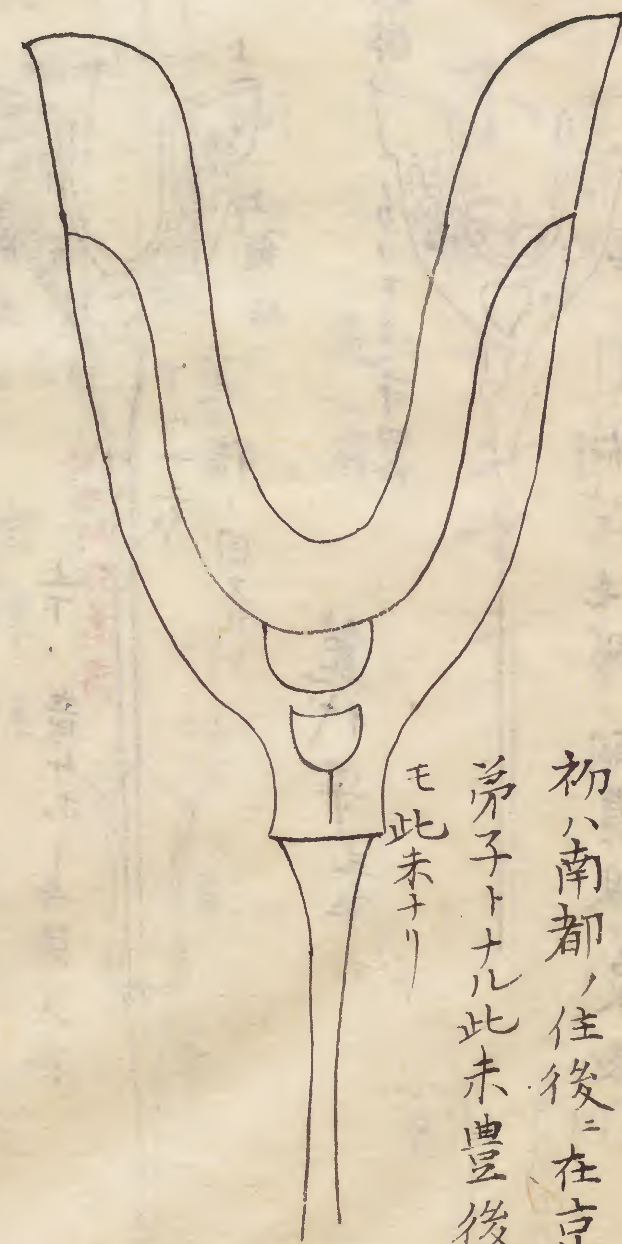 初ハ南都ノ住後ニ在京
弟子トナル此末豊後
モ此末ナリ